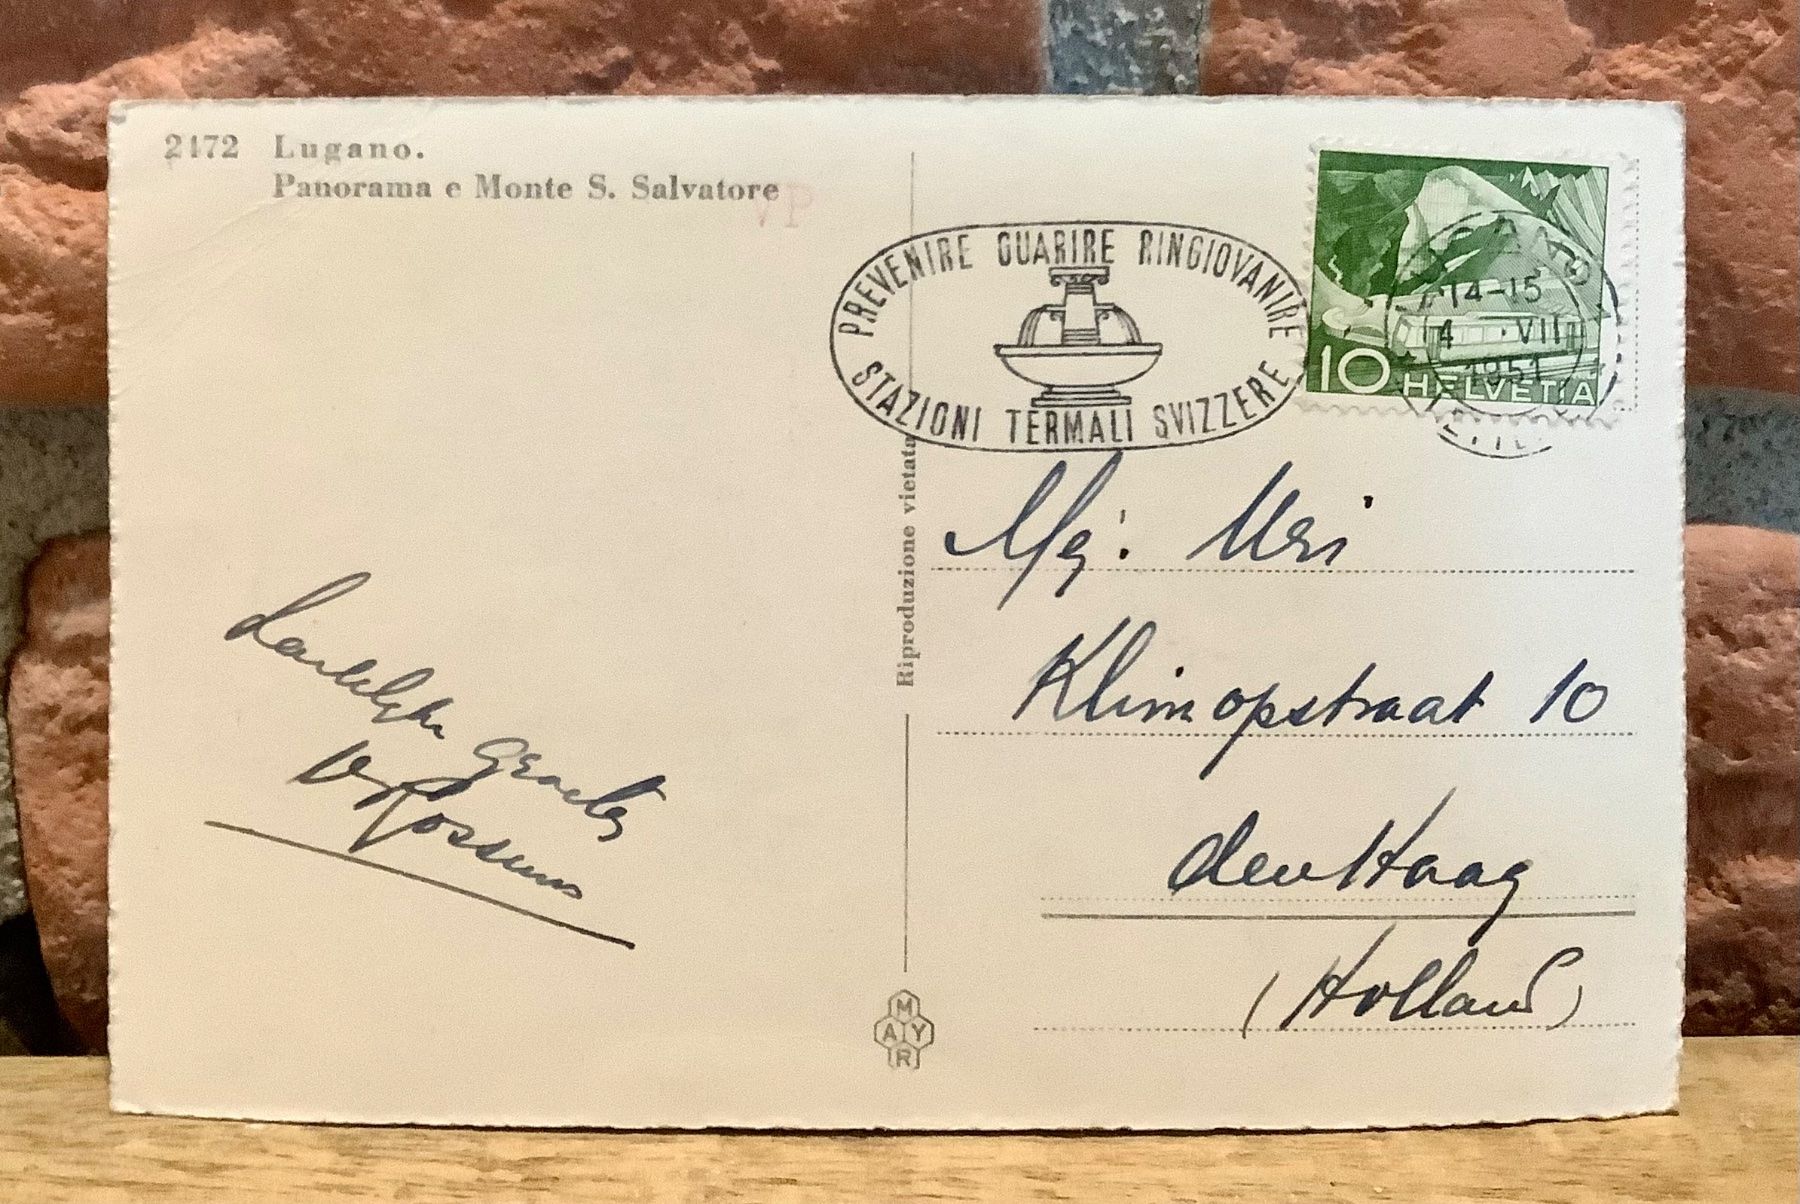 2172 Lugano.
Panorama e Monte S. Salvatore
VP
PREVENIRE GUARIRE RINGIOVANIRE
STAZIONI TERMALI SVIZZERE
14-15
VII
1951
10 HELVETIA
Riproduzione vietata
Mej:
Klimopstraat 10
den Haag
(Holland)
Groeten
v Rossum
MAYR